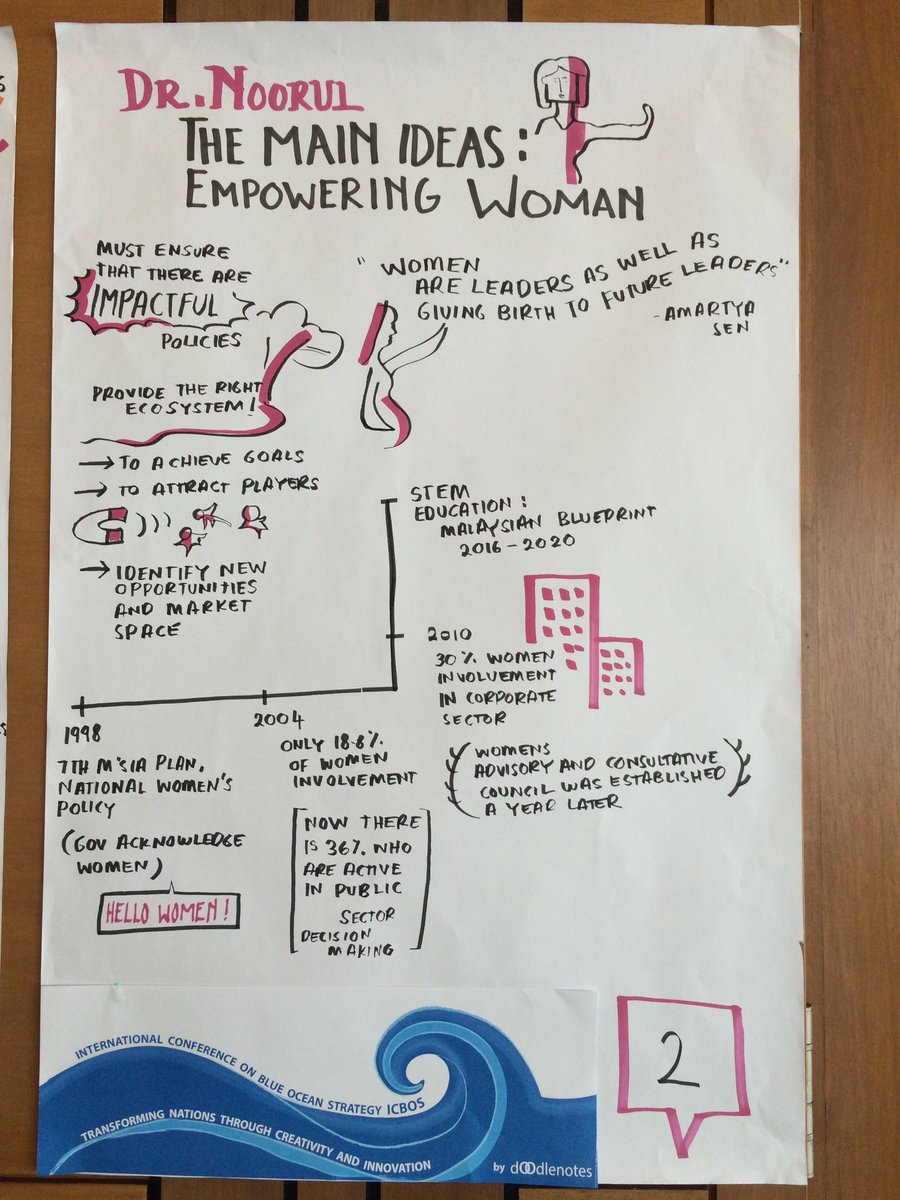 DR. NOORUL
THE MAIN IDEAS:
EMPOWERING WOMAN
MUST ENSURE
THAT THERE ARE
IMPACTFUL
POLICIES
PROVIDE THE RIGHT
ECOSYSTEM!
→ TO ACHIEVE GOALS
→ TO ATTRACT PLAYERS
→ IDENTIFY NEW
OPPORTUNITIES
AND MARKET
SPACE
"WOMEN
ARE LEADERS AS WELL AS
GIVING BIRTH TO FUTURE LEADERS"
- AMARTYA
SEN
STEM
EDUCATION:
MALAYSIAN BLUEPRINT
2016-2020
2010
30% WOMEN
INVOLVEMENT
IN CORPORATE
SECTOR
(WOMENS
ADVISORY AND CONSULTATIVE
COUNCIL WAS ESTABLISHED
A YEAR LATER)
1998
7TH M'SIA PLAN,
NATIONAL WOMEN'S
POLICY
(GOV ACKNOWLEDGE
WOMEN)
HELLO WOMEN!
2004
ONLY 18.8%
OF WOMEN
INVOLVEMENT
[NOW THERE
IS 36% WHO
ARE ACTIVE
IN PUBLIC
SECTOR
DECISION
MAKING]
INTERNATIONAL CONFERENCE ON BLUE OCEAN STRATEGY ICBOS
TRANSFORMING NATIONS THROUGH CREATIVITY AND INNOVATION
by dOOdlenotes
2